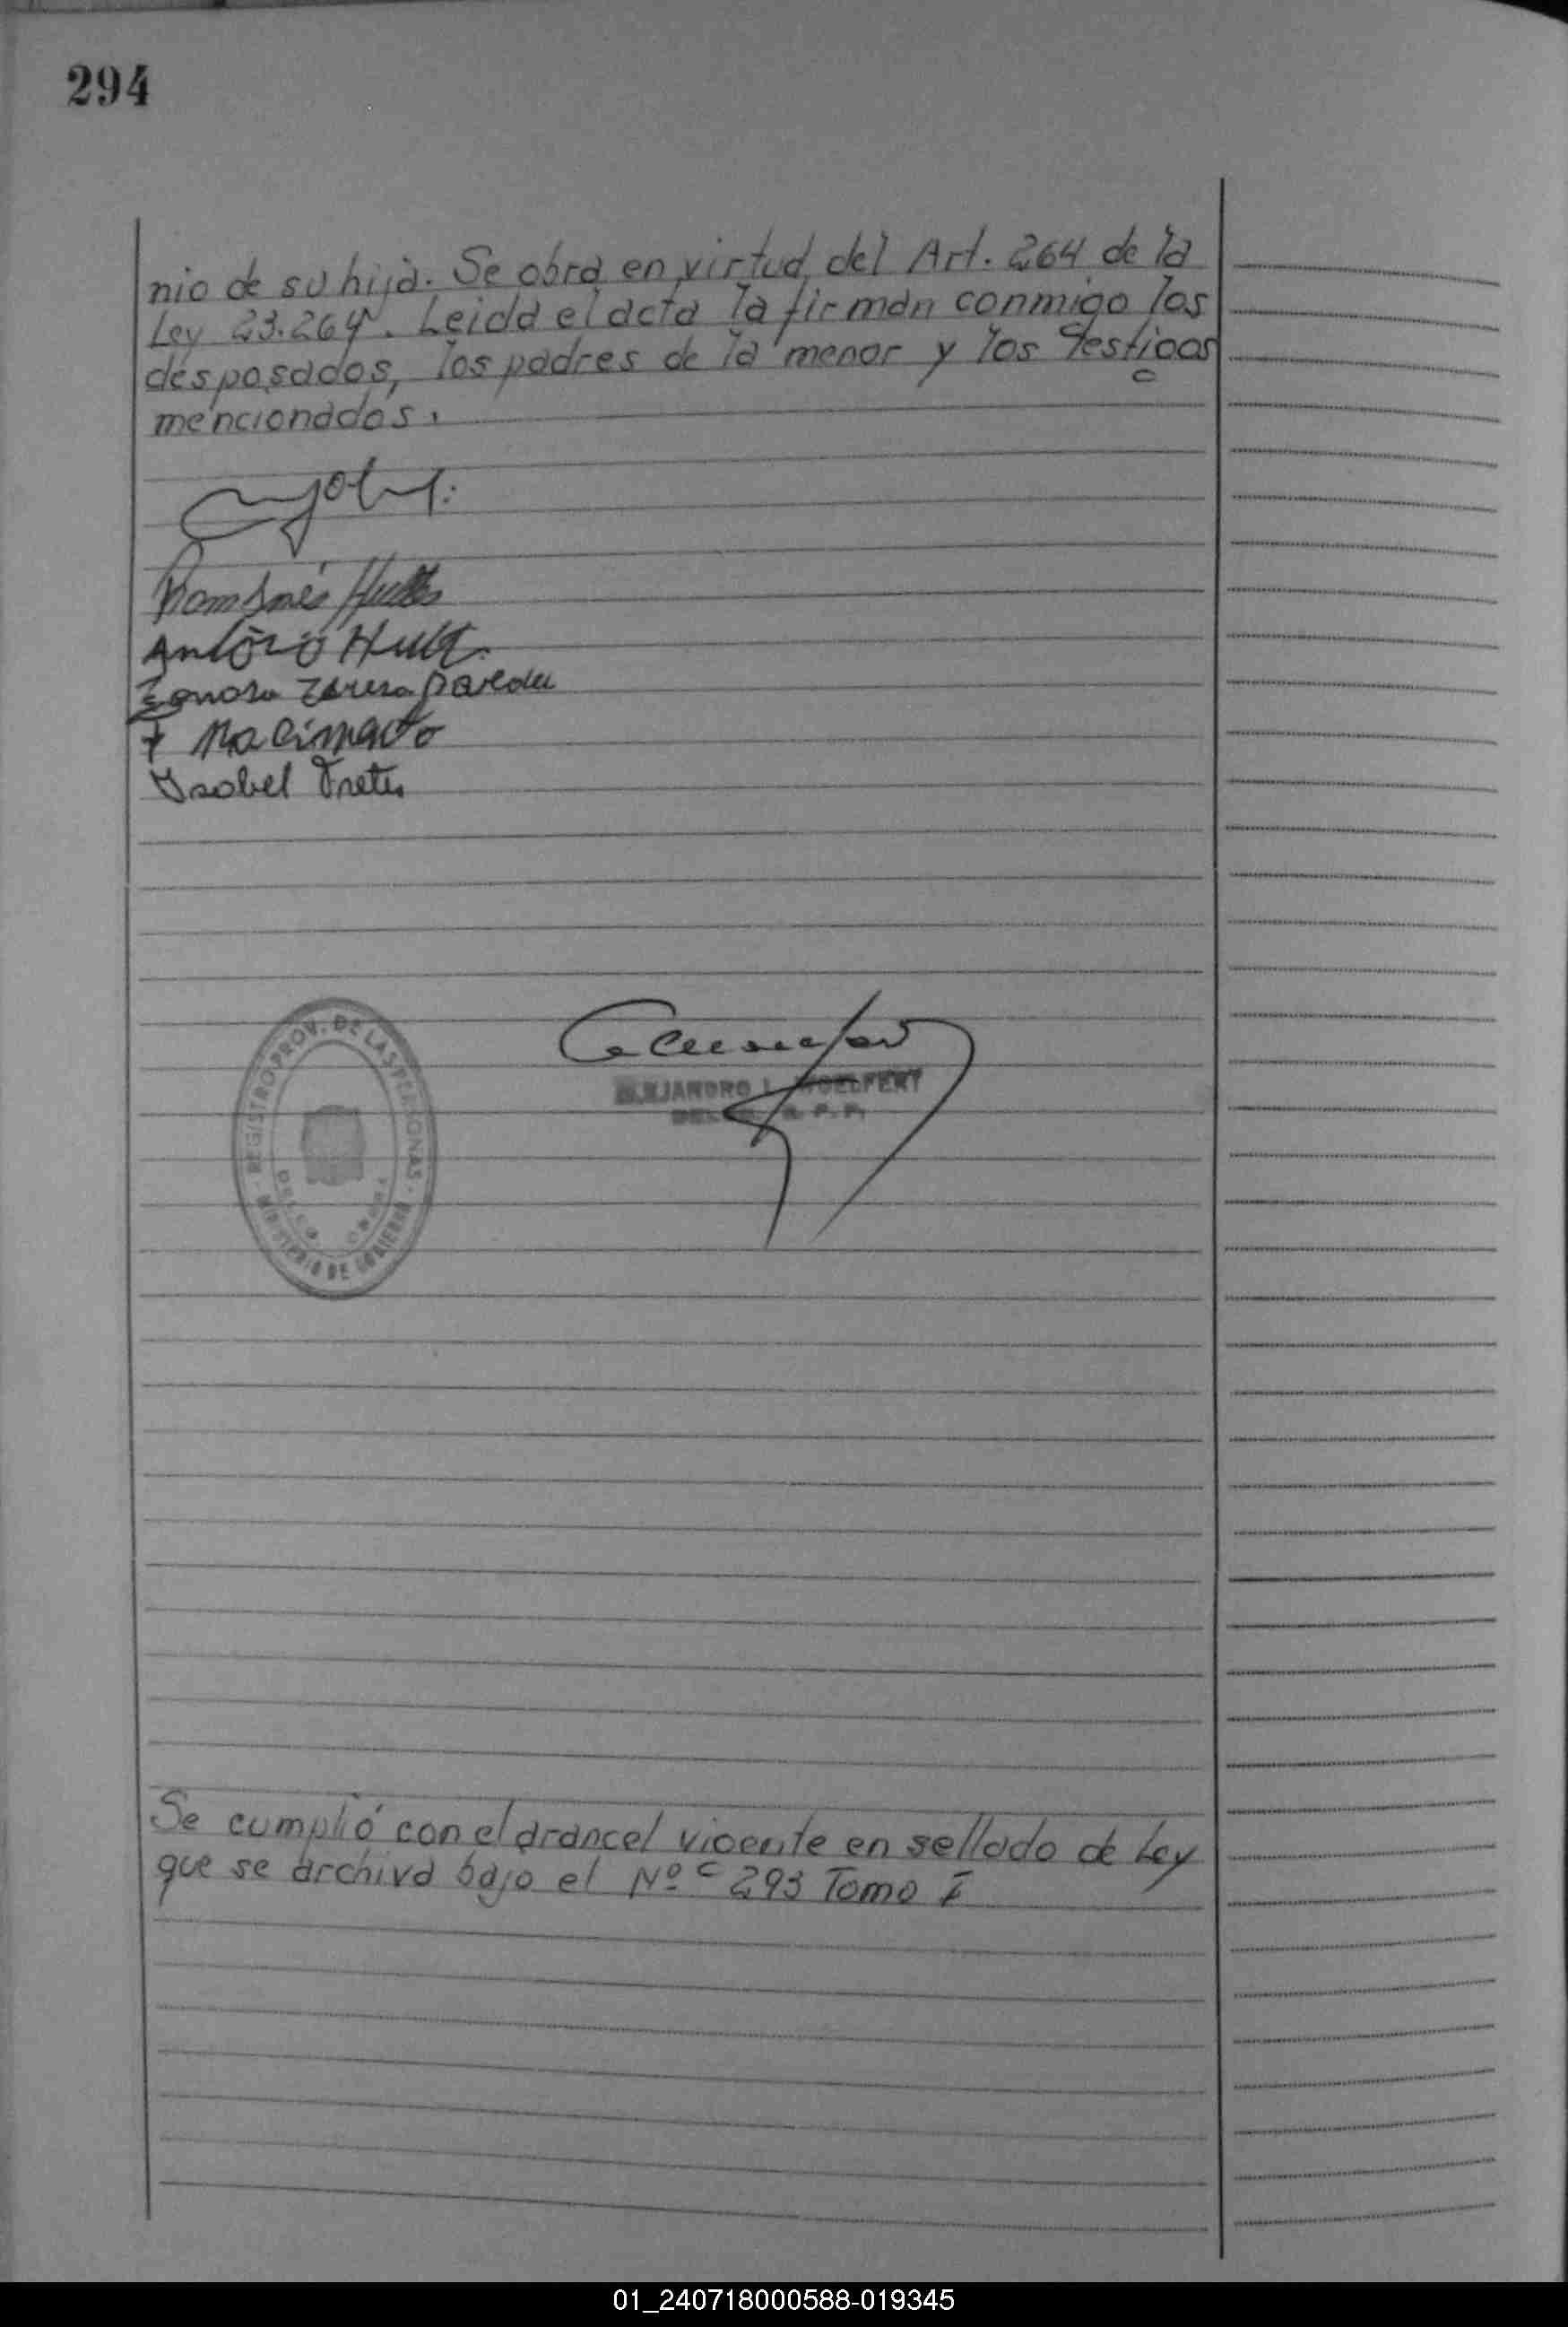 294
nio de su hija. Se obra en virtud del Art. 264 de la
Ley 23.264. Leida el acta la firman conmigo los
desposados, los padres de la menor y los Testigos
mencionados.
Inés
Antonio Hult
Teresa Paredes
Isabel Fretes
REGISTRO PROV. DE LAS PERSONAS
MINISTERIO DE GOBIERNO
ALEJANDRO L. WOELFERT
R. P. P.
Se cumplió con el arancel vigente en sellado de Ley
que se archiva bajo el Nº 293 Tomo I
01_240718000588-019345